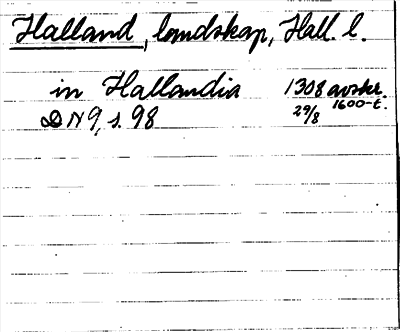 Halland, landskap, Hall. l.
in Hallandia 1308 avskr.
DN 9, s. 98 29/8 1600-t.